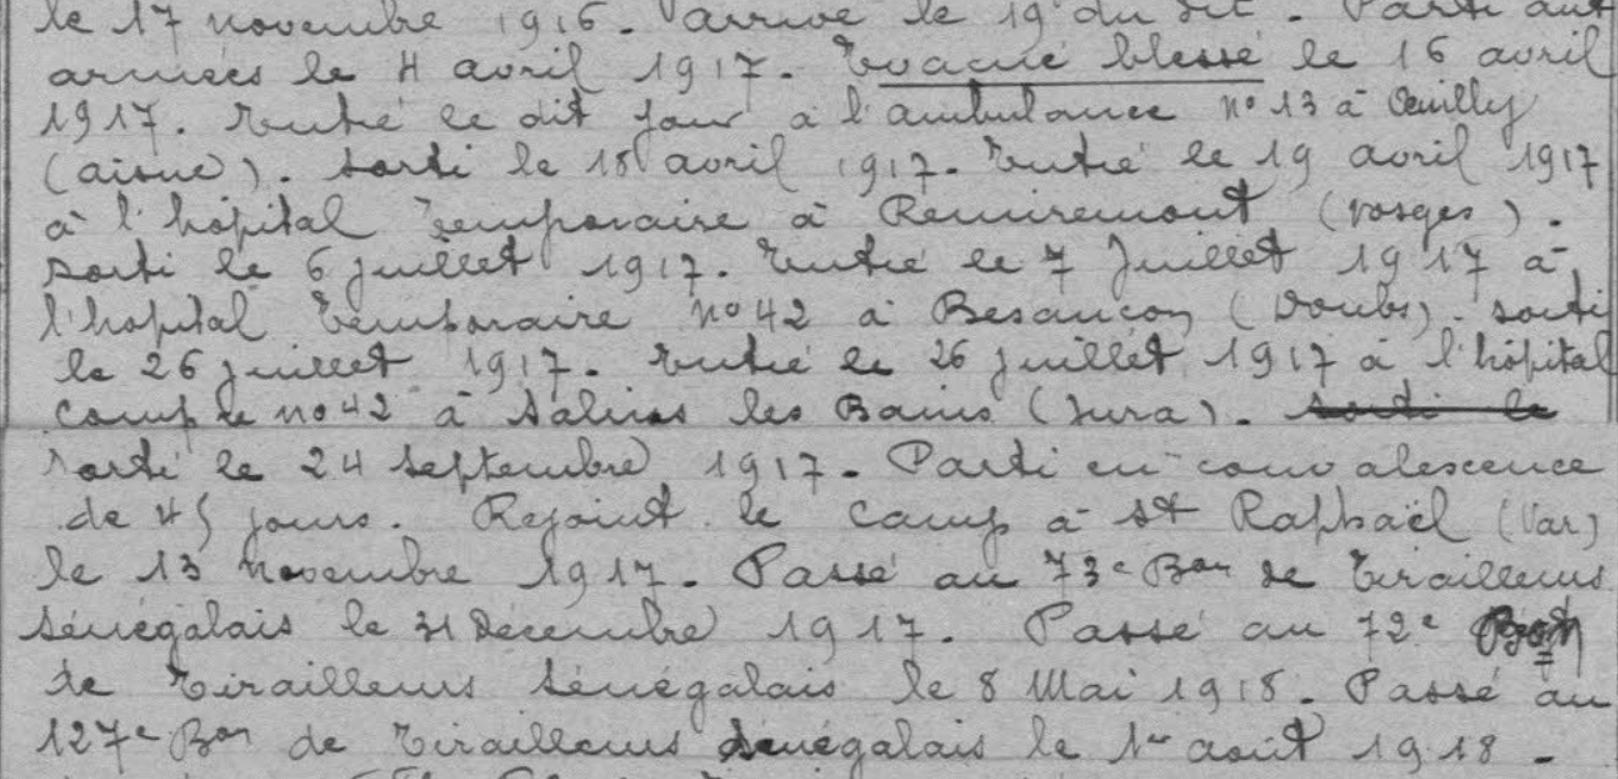 le 17 novembre 1916. arrivé le 19 du dit. Parti aux
armées le 4 avril 1917. Evacué blessé le 16 avril
1917. Entré le dit jour à l'ambulance no 13 à Oeuilly
(aisne). sorti le 18 avril 1917. Entré le 19 avril 1917
à l'hôpital temporaire à Remiremont (vosges).
sorti le 6 juillet 1917. Entré le 7 Juillet 1917 à
l'hopital temporaire no 42 à Besançon (Doubs). sorti
le 26 juillet 1917. entré le 26 juillet 1917 à l'hôpital
comple no 42 à Salins les Bains (Jura). sorti le
sorti le 24 septembre 1917. Parti en convalescence
de 45 jours. Rejoint le camp à st Raphaël (Var)
le 13 novembre 1917. Passé au 73e Bon de Tirailleurs
sénégalais le 31 Décembre 1917. Passé au 72e Bon
de Tirailleurs sénégalais le 8 Mai 1918. Passé au
127e Bon de Tirailleurs sénégalais le 1er août 1918.